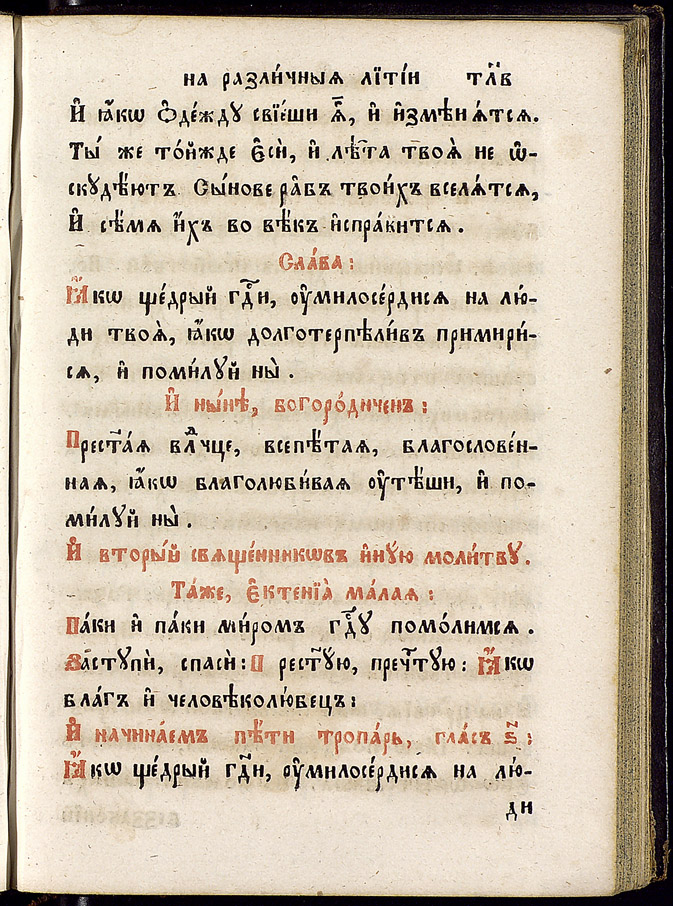 на разли́чныѧ лїтїи тл҃в
И҆ ꙗ҆́кѡ ѻ҆де́жду свїе́ши ѧ҆̀, и҆ и҆змѣнѧ́тсѧ.
Ты́ же то́йжде є҆сѝ, и҆ лѣ̑та твоѧ̀ не ѡ҆-
скудѣ́ютъ Сы́нове ра̑бъ твои́хъ вселѧ́тсѧ,
И҆ сѣ́мѧ и҆́хъ во вѣ́къ и҆спра́витсѧ.
Сла́ва:
Ꙗ҆́кѡ ще́дрый гдⷭ҇и, ᲂу҆милосе́рдисѧ на лю́-
ди твоѧ̀, ꙗ҆́кѡ долготерпѣли́въ примири́-
сѧ, и҆ поми́луй ны̀.
И҆ ны́нѣ, богоро́диченъ:
Прест҃а́ѧ влⷣчце, всепѣ́таѧ, благослове́н-
наѧ, ꙗ҆́кѡ благолюби́ваѧ ᲂу҆тѣ́ши, и҆ по-
ми́луй ны̀.
И҆ вторы́й свѧще́нникѡвъ и҆ну́ю моли́тву.
Та́же, є҆ктенїа̀ ма́лаѧ:
Па́ки и҆ па́ки ми́ромъ гдⷭ҇у помо́лимсѧ.
Заступѝ, спасѝ: П рест҃у́ю, пречⷭ҇тую: Ꙗ҆́кѡ
бла́гъ и҆ человѣколю́бецъ:
И҆ начина́емъ пѣ́ти тропа́рь, гла́съ в҃:
Ꙗ҆́кѡ ще́дрый гдⷭ҇и, ᲂу҆милосе́рдисѧ на лю́-
ди